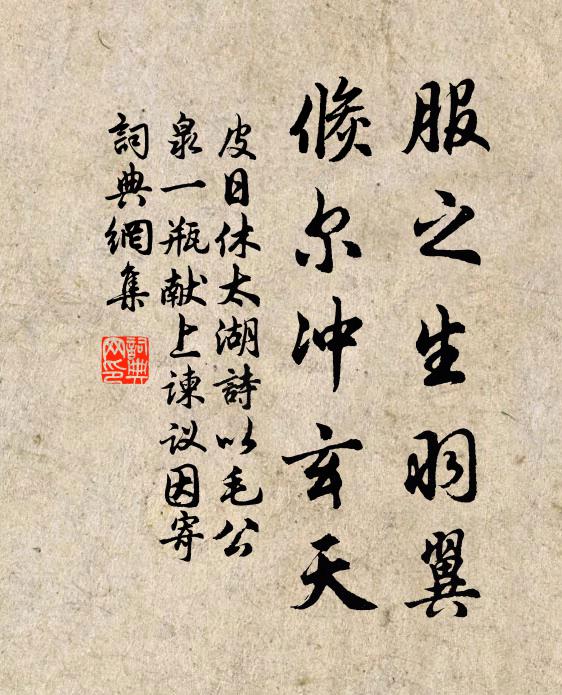 服之生羽翼
倏尔冲玄天
皮日休太湖詩以毛公
泉一瓶献上谏议因寄
詞典網集
詞典
网印